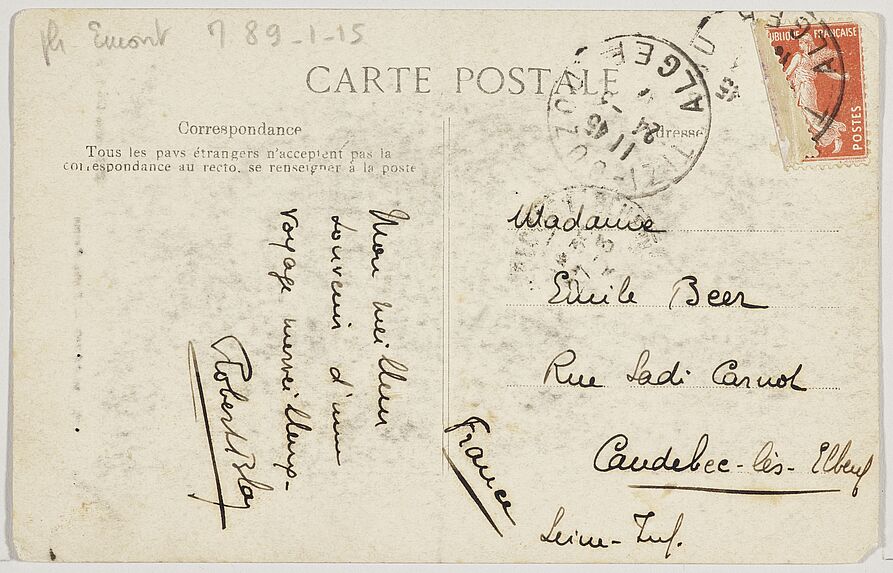 ph Emont 789-1-15
CARTE POSTALE
Correspondance
Tous les pays étrangers n'acceptent pas la
correspondance au recto, se renseigner à la poste
Adresse
ALGER
11 45
24
ALGER
RÉPUBLIQUE FRANÇAISE
POSTES
Mon meilleur
souvenir d'une
voyage merveilleux-
Robert Blay
Madame
Emile Beer
Rue Sadi Carnot
Caudebec-lès-Elbeuf
Seine-Inf.
France